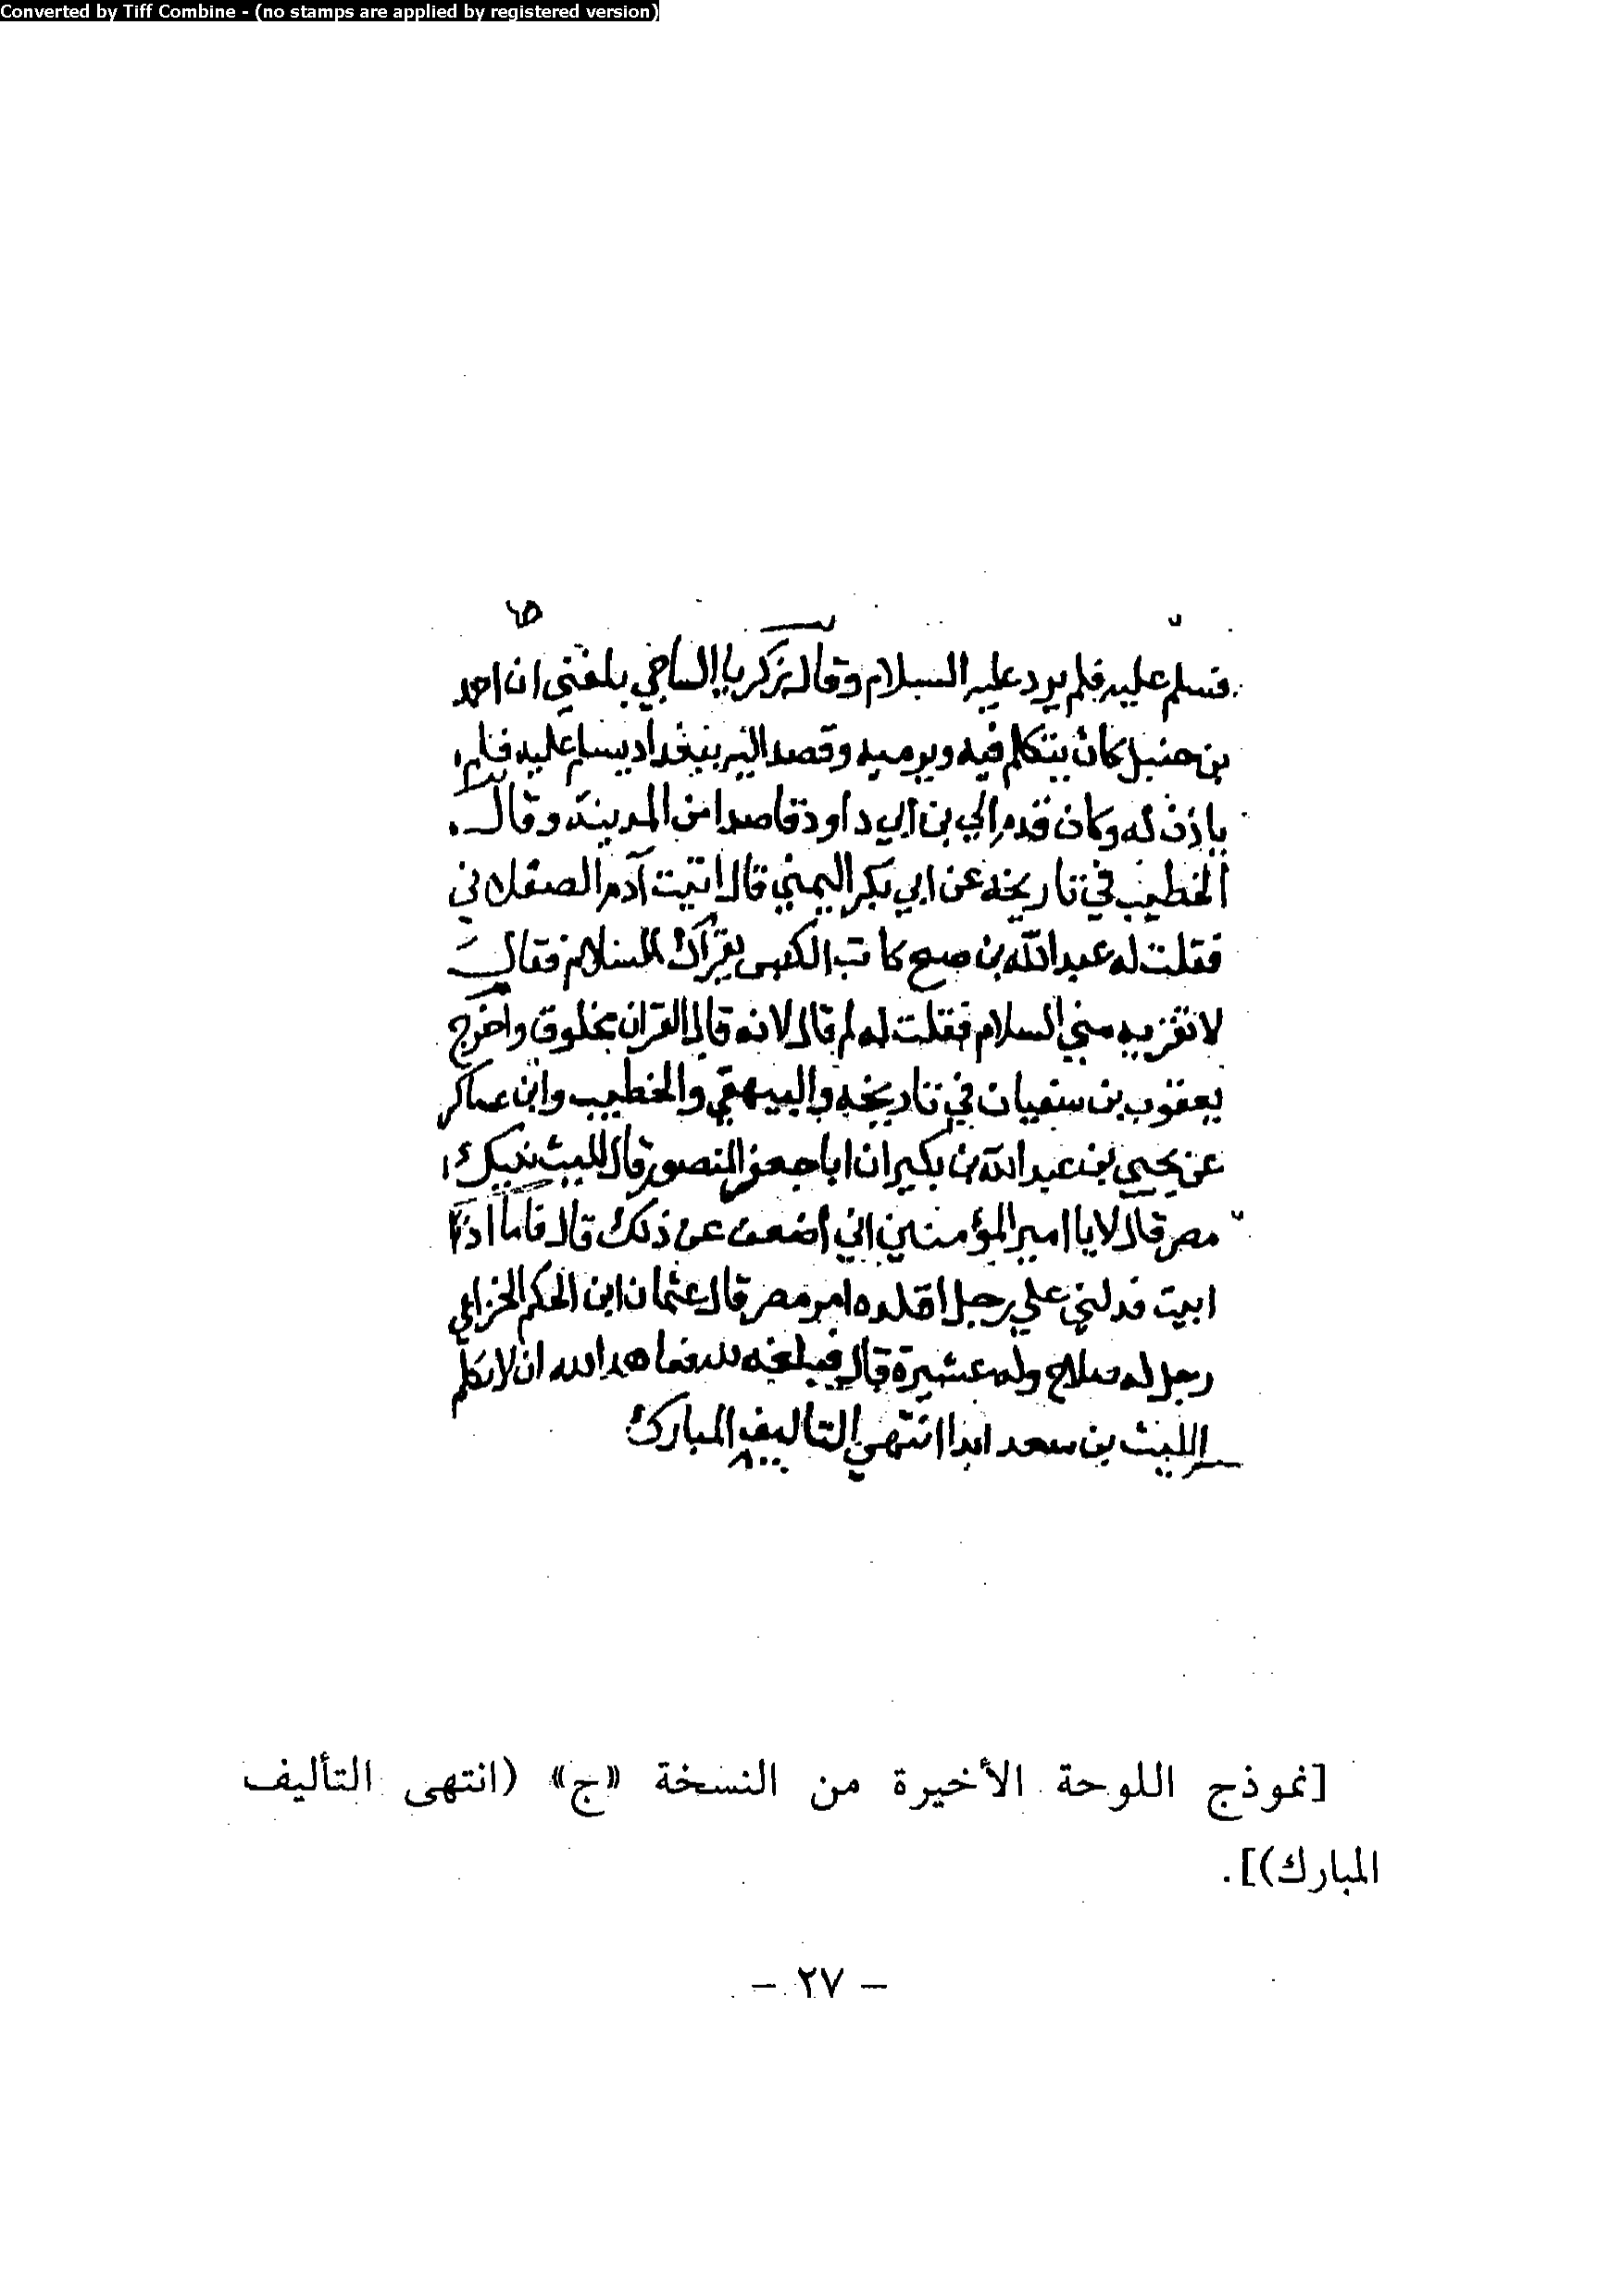 Converted by Tiff Combine - (no stamps are applied by registered version)
فسلم عليه فلم يرد عليه السلام وقال زكريا الساجي بلغني ان احمد
بن حنبل كان يتكلم فيه ويرميه وقصد اليه ببغداد يسلم عليه فلم
ياذن له وكان قدم الي بن ابي داود قاصدا من المدينة وقال
الخطيب في تاريخه عن ابي بكر اليمني قال اتيت آدم
فقلت له عبد الله بن صح كاتب يقرأك السلام فقال
لا تقريه مني السلام فقلت له لم قال لانه قال القران مخلوق واخرج
يعقوب بن سفيان في تاريخه والبيهقي والخطيب وابن عساكر
عن يحيي بن عبد الله بن بكير ان ابا جعفر المنصور قال لليث
مصر قال لا يا امير المؤمنين اني اضعف عن ذلك قال فاما اذا
ابيت فدلني علي رجل اقلده امر مصر قال عثمان ابن الحكم الخزاعي
رجل له صلاح وله عشيرة قال فبلغه الله ان لا يكلم
الليث بن سعد ابدا انتهي التاليف المبارك
[نموذج اللوحة الأخيرة من النسخة «ج» (انتهى التأليف
المبارك)].
- ٢٧ -